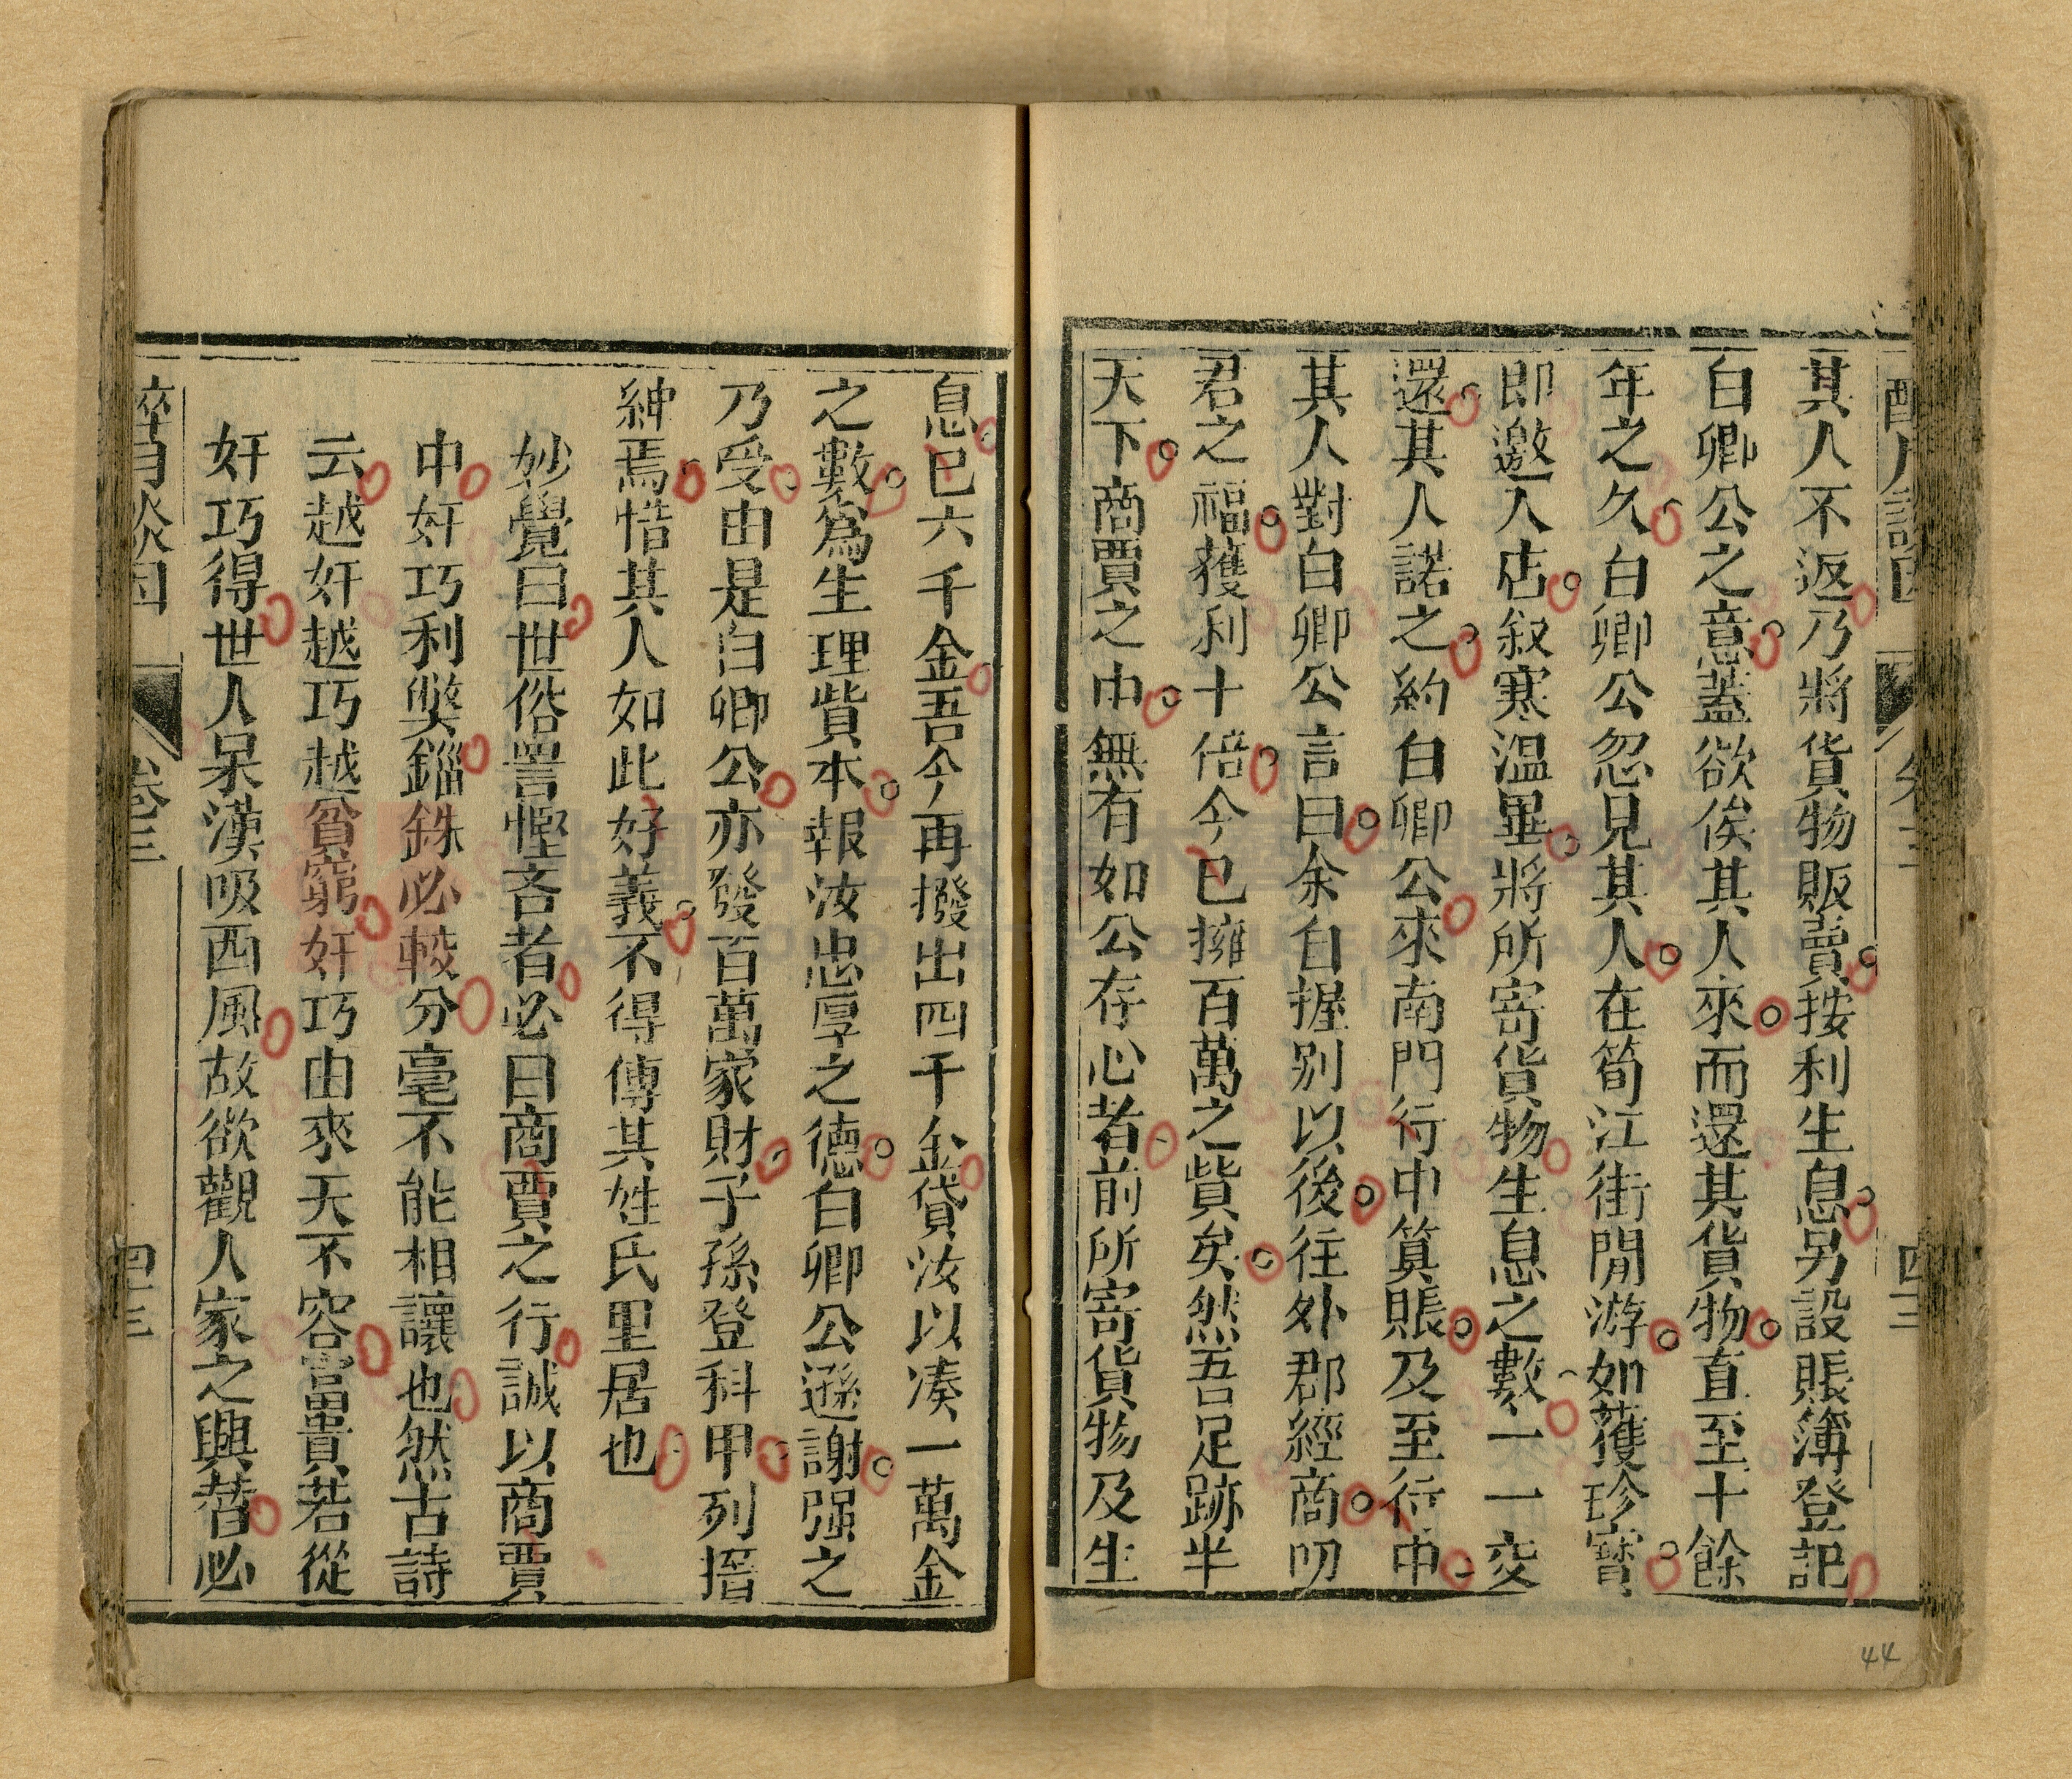 其人不返乃將貨物販賣按利生息另設賬簿登記
白卿公之意蓋欲俟其人來而還其貨物直至十餘
年之久白卿公忽見其人在筍江街閒游如獲珍寶
即邀入店叙寒溫畢將所寄貨物生息之數一一交
還其人諾之約白卿公來南門行中算賬及至行中
其人對白卿公言曰余自握别以後往外郡經商叨
君之福獲利十倍今已擁百萬之貲矣然吾足跡半
天下商賈之中無有如公存心者前所寄貨物及生
息已六千金吾今再撥出四千金貸汝以凑一萬金
之數爲生理貲本報汝忠厚之德白卿公遜謝强之
乃受由是白卿公亦發百萬家財子孫登科甲列搢
紳焉惜其人如此好義不得傳其姓氏里居也
妙覺曰世俗詈慳吝者必曰商賈之行誠以商賈
中奸巧利獘錙銖必較分毫不能相讓也然古詩
云越奸越巧越貧窮奸巧由來天不容富貴若從
奸巧得世人呆漢吸西風故欲觀人家之興替必
卷三
四三
44